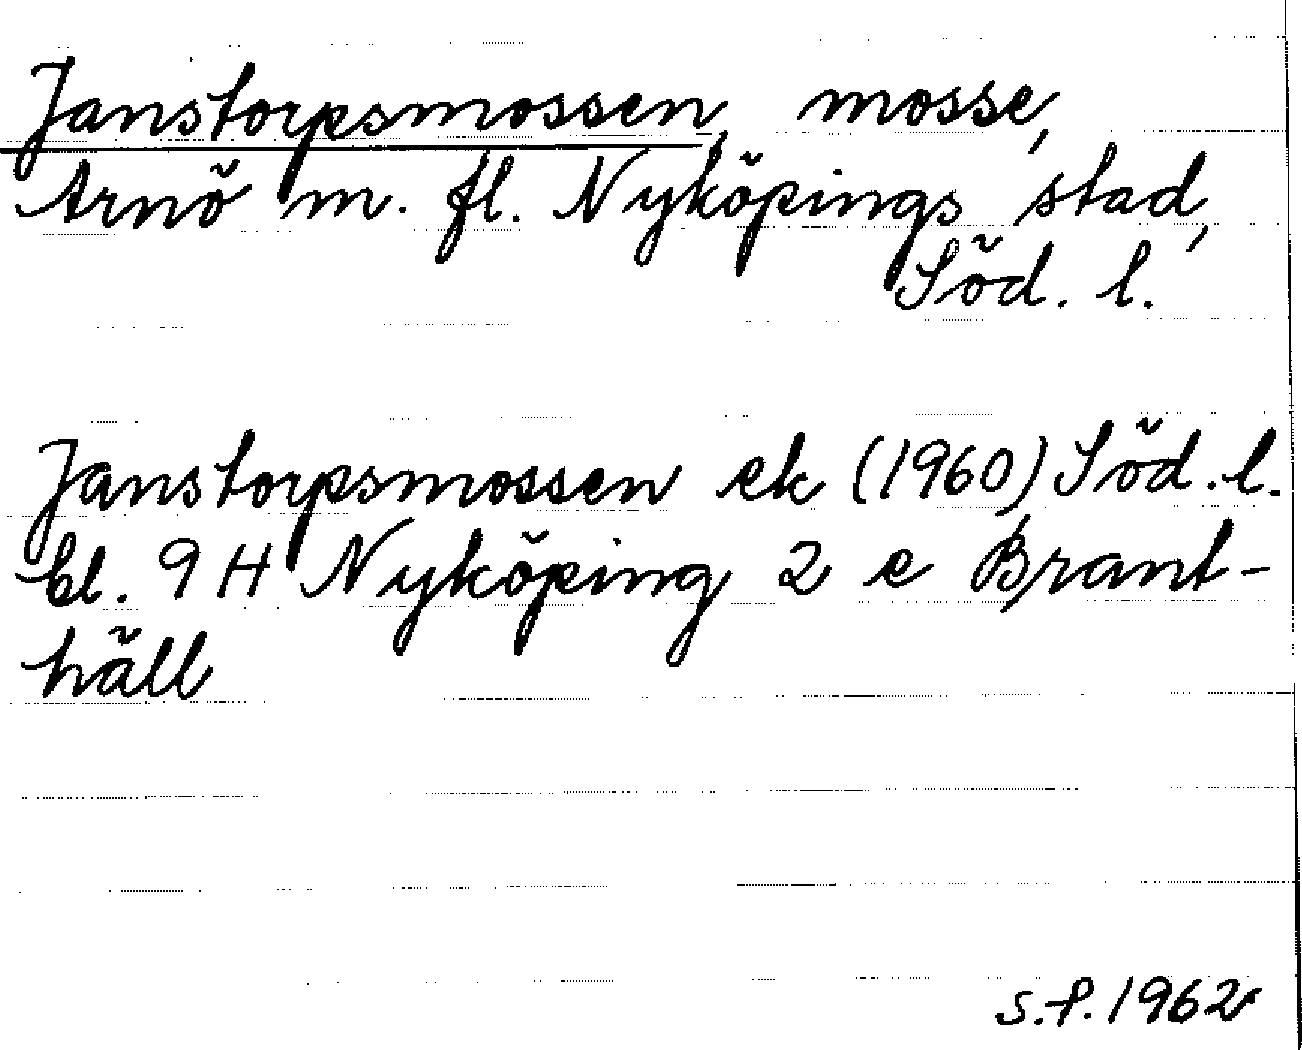 Janstorpsmossen, mosse,
Arnö m. fl. Nyköpings stad,
Söd. l.
Janstorpsmossen ek (1960) Söd. l.
bl. 9 H Nyköping 2 e Brant-
häll
S.P. 1962